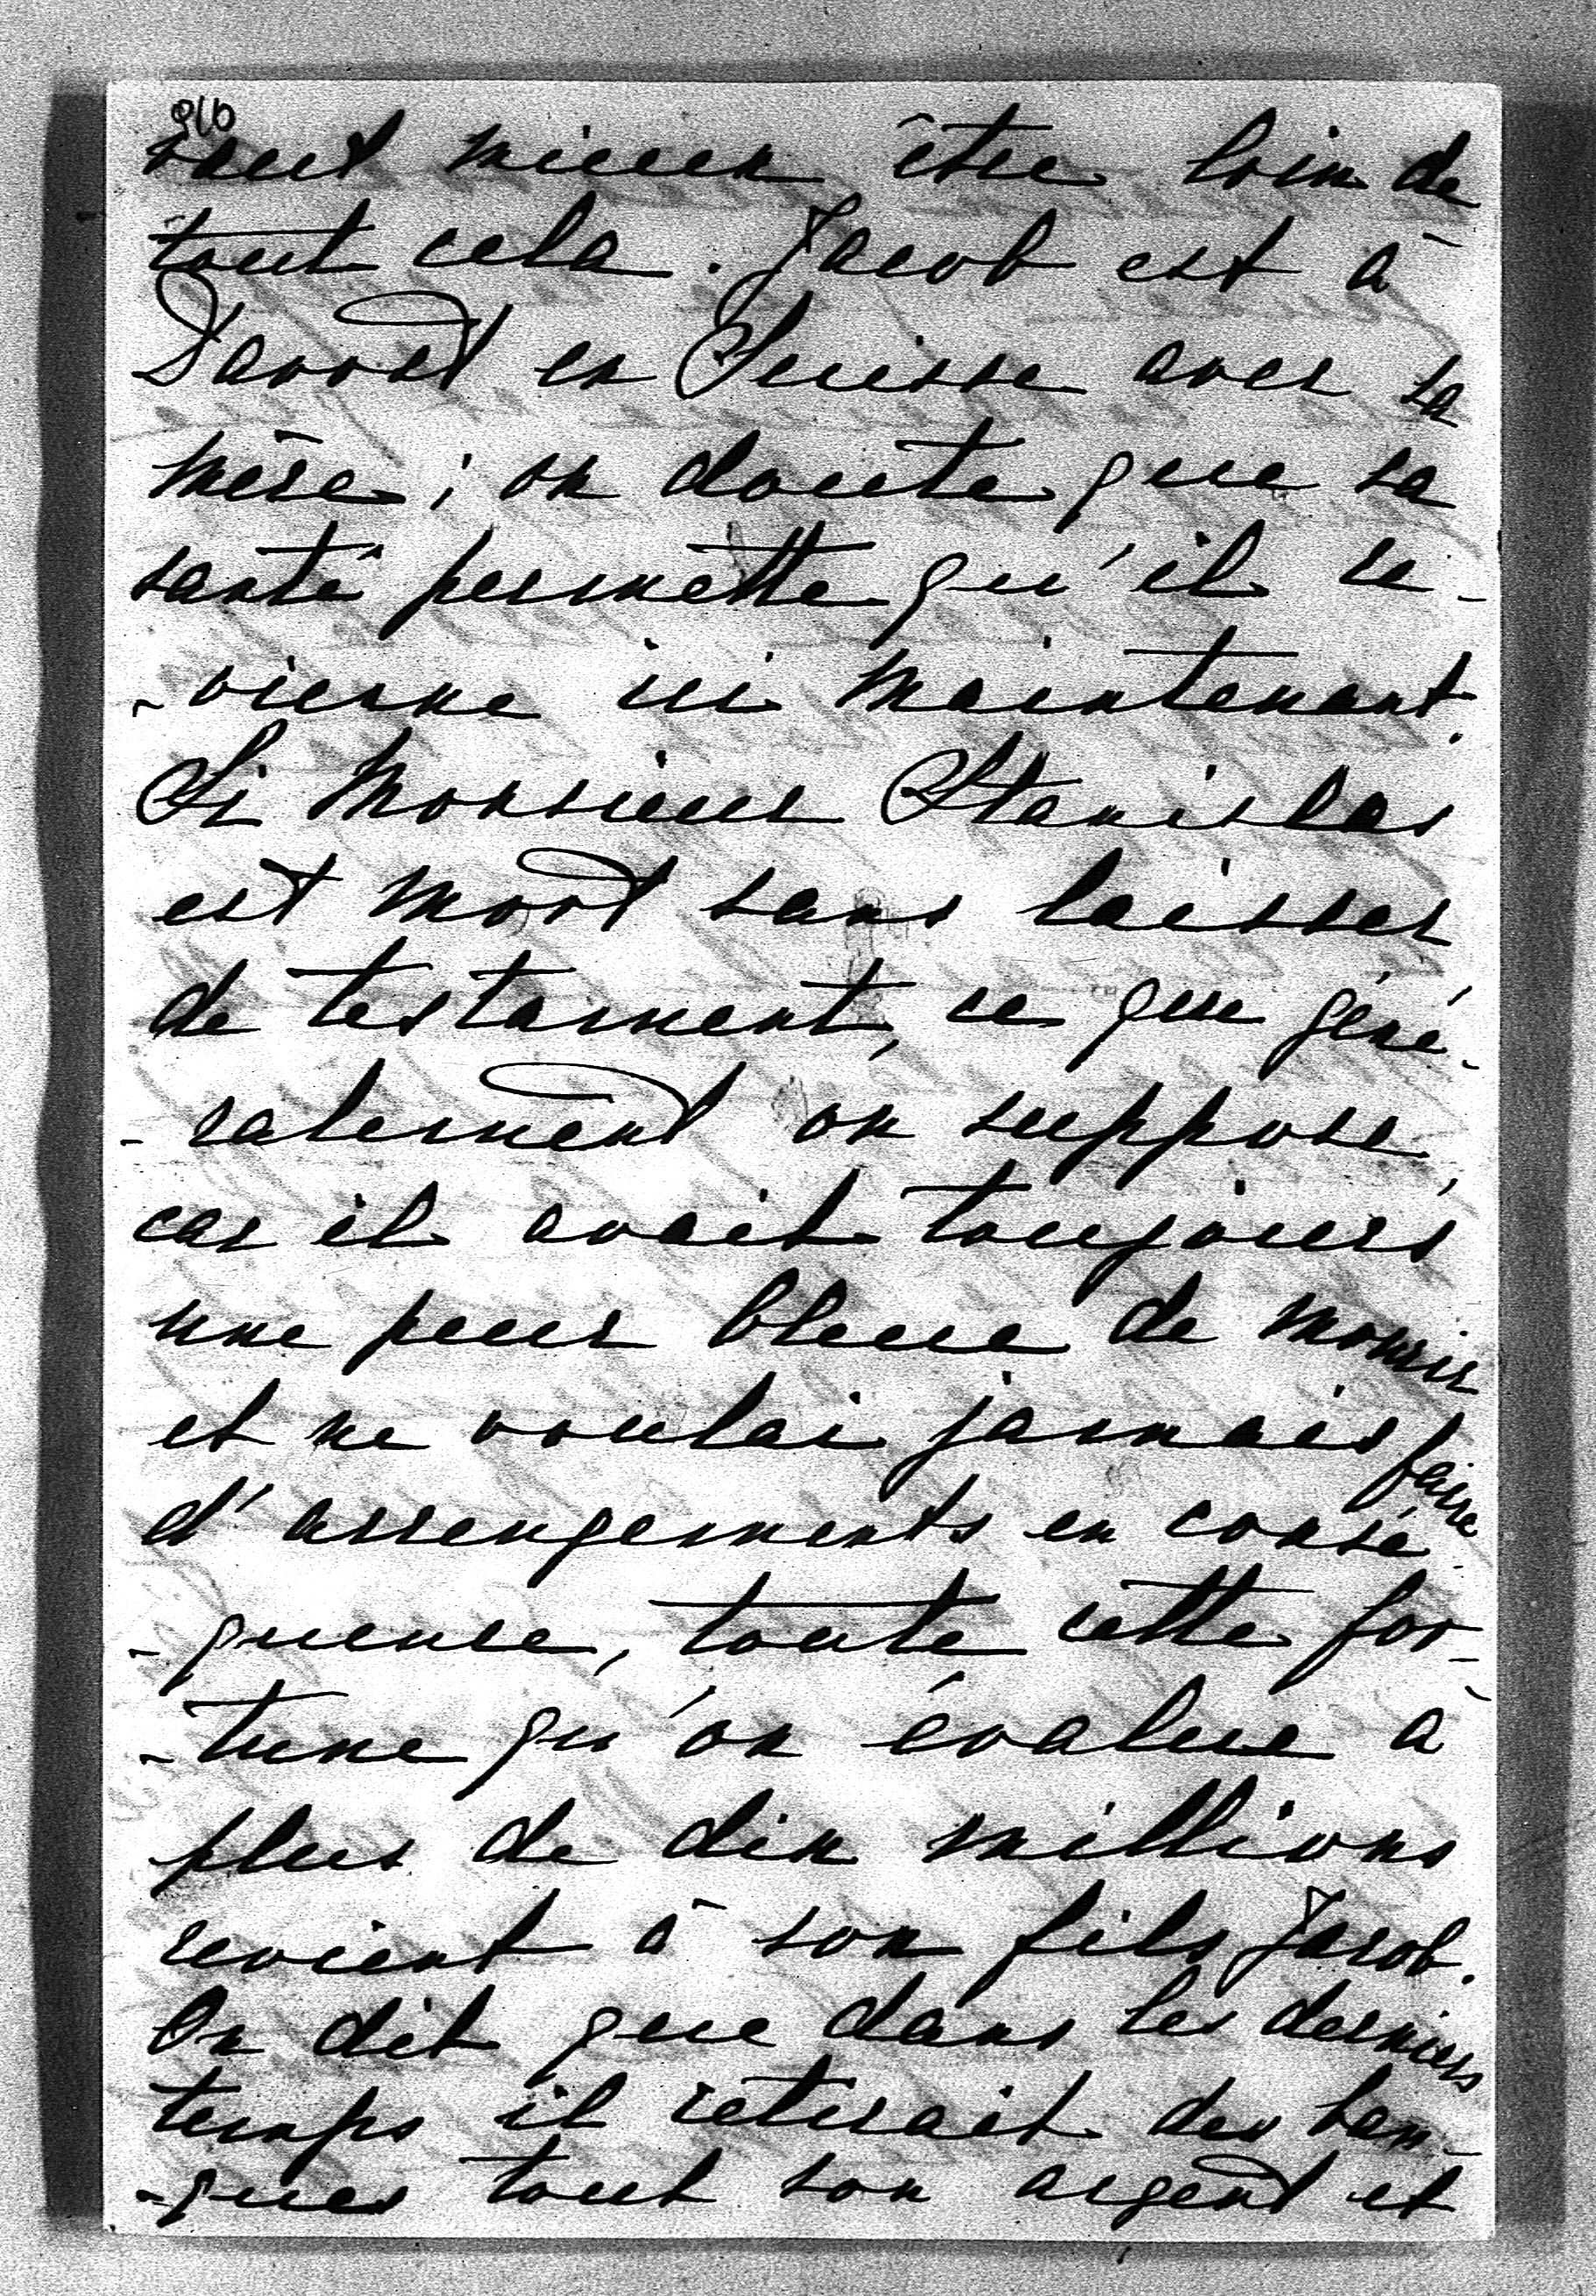 916
vaut mieux être loin de
tout cela. Jacob est à
en Suisse avec sa
mère; on doute que sa
santé permette qu'il re-
-vienne ici maintenant.
Si Monsieur Stanislas
est mort sans laisser
de testament, ce que géné-
-ralement on suppose,
car il avait toujours
une peur bleue de mourir
et ne voulai jamais faire
d'arrengements en consé-
-quence, toute cette for-
-tune qu'on évalue à
plus de dix millions
revient à son fils Jacob.
On dit que dans les derniers
temps il retirait des ban-
-ques tout son argent et